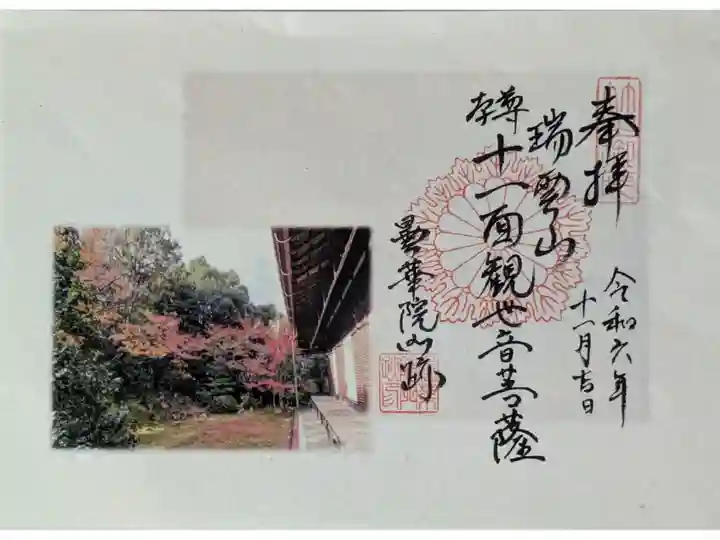 奉拝
令和六年
十一月吉日
瑞雲山
本尊
十一面観世音菩薩
曇華院山跡